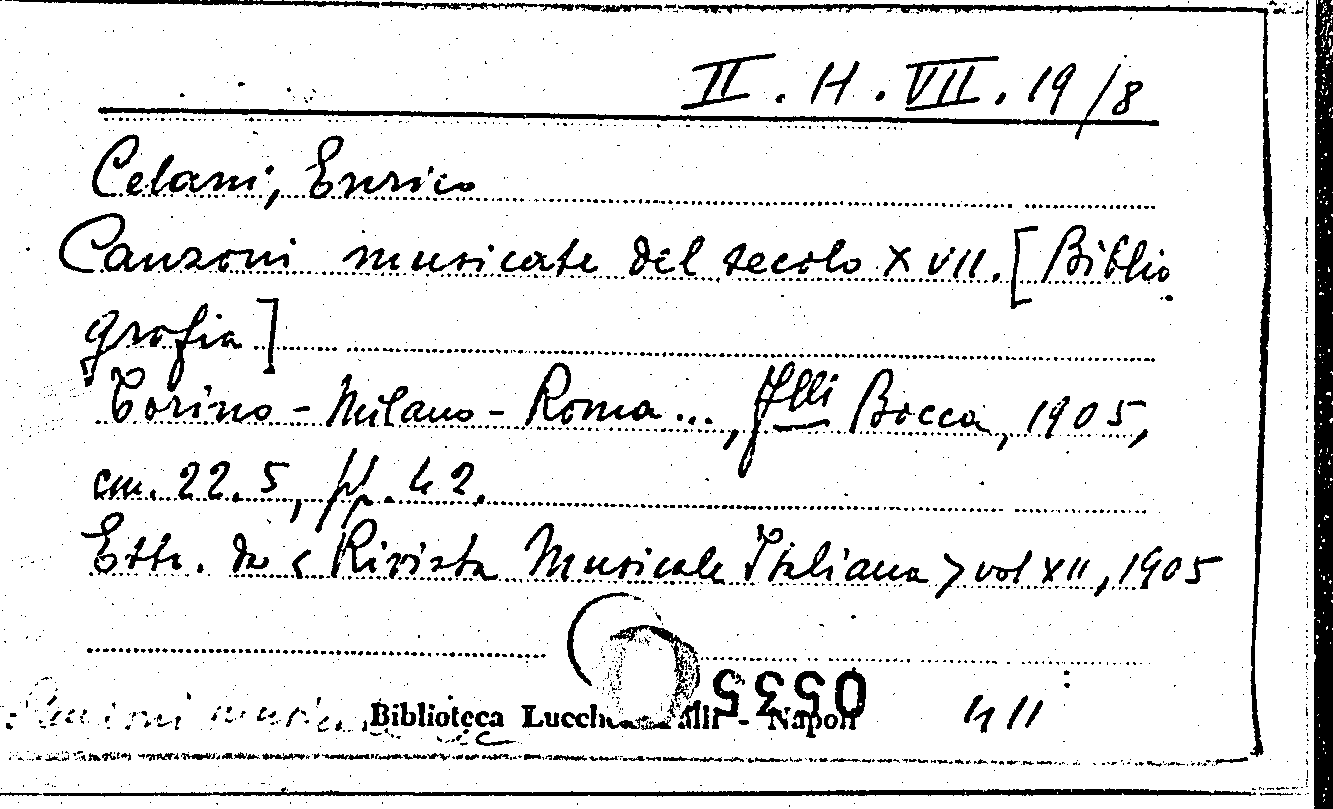 II. H. VII. 19/8
Celani, Enrico
Canzoni musicate del secolo XVII. [Biblio
grafia]
Torino - Milano - Roma..., Flli Bocca, 1905,
cm. 22.5, pp. 42.
Estr. da < Rivista Musicale Italiana > vol XII, 1905
0535
Biblioteca - Napoli
411